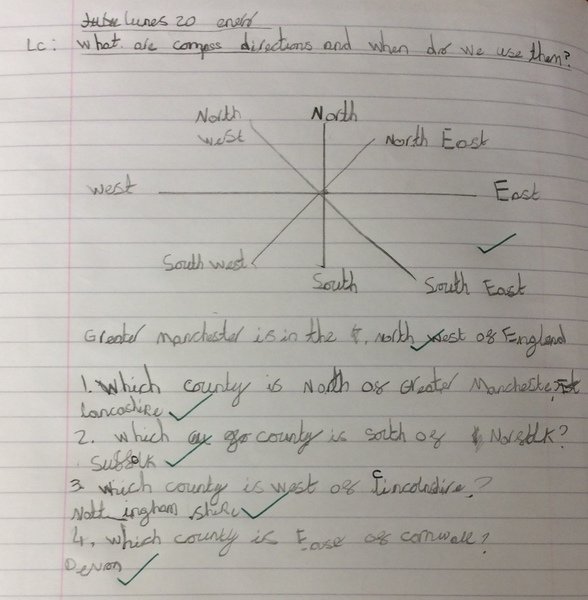 Lunes 20 enero
Lc: What are compass directions and when do we use them?
North west
North
North East
west
East
South west
South
South East
Greater manchester is in the North west of England
1. Which county is North of Greater Manchester
Lancashire
2. Which county is south of Norfolk?
Suffolk
3. Which county is west of Lincolnshire?
Nott ingham shire
4. Which county is East of cornwall?
Devon